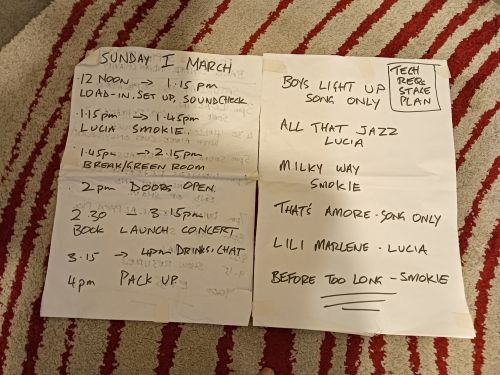 SUNDAY I MARCH
12 NOON → 1.15.pm
LOAD-IN. SET UP, SOUNDCHECK
1.15pm → 1.45pm
LUCIA SMOKIE.
1.45pm → 2.15pm
BREAK/GREEN ROOM
2pm DOORS OPEN.
2.30 → 3.15pm
BOOK LAUNCH CONCERT
3.15 → 4pm DRINKS, CHAT
4pm PACK UP
BOYS LIGHT UP
SONG ONLY
TECH
REQ:
STAGE
PLAN
ALL THAT JAZZ
LUCIA
MILKY WAY
SMOKIE
THAT'S AMORE - SONG ONLY
LILI MARLENE - LUCIA
BEFORE TOO LONG - SMOKIE